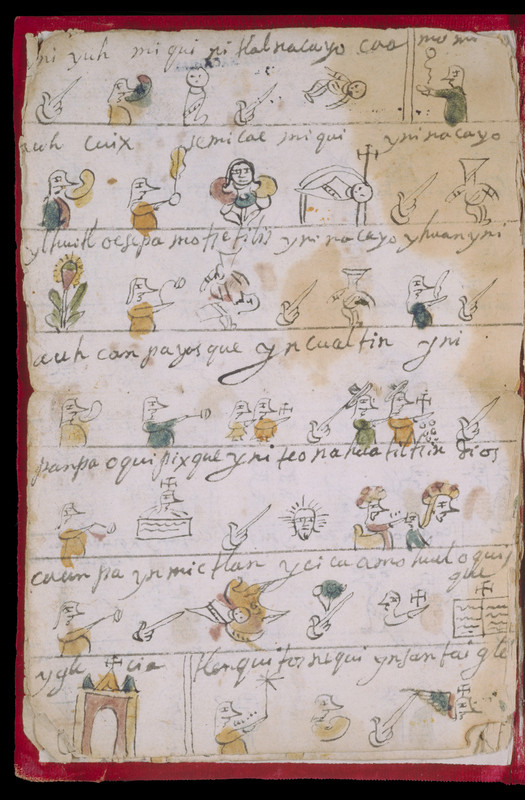 ni yuh miqui ni tlalnacayo caa momi
auh cuix semicac miqui yni nacayo
ylhuitl ocsepa mosetilis yni nacayo yhuan yni
auh canpa yasque yn cualtin yni
panpa oquipixque yni teonahuatiltzin dios
caunpa yn mictlan ycica amo hual oquip
que
ygle cia tlenquitosnequi ynsantaigle